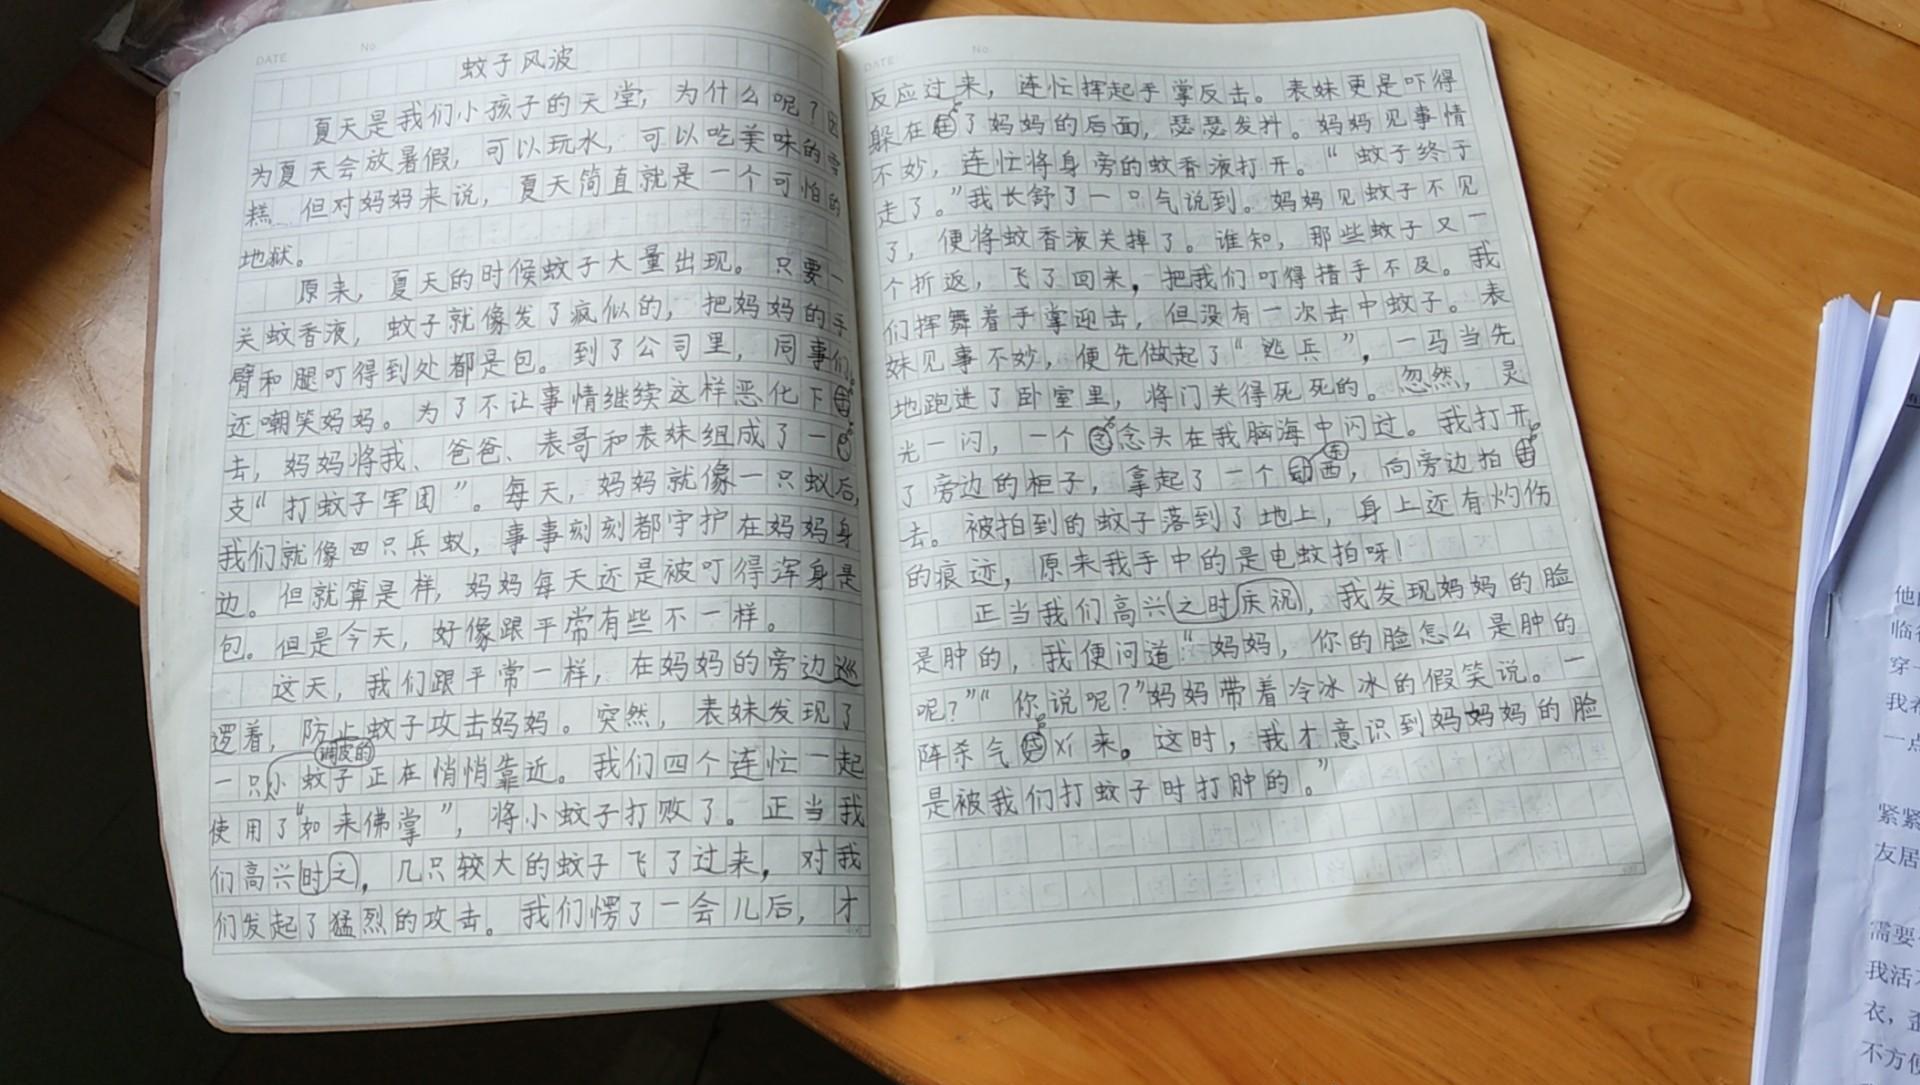 DATE No.
蚊子风波
夏天是我们小孩子的天堂，为什么呢？因
为夏天会放暑假，可以玩水，可以吃美味的雪
糕。但对妈妈来说，夏天简直就是一个可怕的
地狱。
原来，夏天的时候蚊子大量出现。只要一
关蚊香液，蚊子就像发了疯似的，把妈妈的手
臂和腿叮得到处都是包。到了公司里，同事们
还嘲笑妈妈。为了不让事情继续这样恶化下
去，妈妈将我、爸爸、表哥和表妹组成了一
支“打蚊子军团”。每天，妈妈就像一只蚁后，
我们就像四只兵蚁，事事刻刻都守护在妈妈身
边。但就算是样，妈妈每天还是被叮得浑身是
包。但是今天，好像跟平常有些不一样。
这天，我们跟平常一样，在妈妈的旁边巡
逻着，防止蚊子攻击妈妈。突然，表妹发现了
调皮的
一只小蚊子正在悄悄靠近。我们四个连忙一起
使用了“如来佛掌”，将小蚊子打败了。正当我
们高兴时之，几只较大的蚊子飞了过来，对我
们发起了猛烈的攻击。我们愣了一会儿后，才
DATE No.
反应过来，连忙挥起手掌反击。表妹更是吓得
躲在了妈妈的后面，瑟瑟发抖。妈妈见事情
不妙，连忙将身旁的蚊香液打开。“蚊子终于
走了。”我长舒了一口气说到。妈妈见蚊子不见
了，便将蚊香液关掉了。谁知，那些蚊子又一
个折返，飞了回来，把我们叮得措手不及。我
们挥舞着手掌迎击，但没有一次击中蚊子。表
妹见事不妙，便先做起了“逃兵”，一马当先
地跑进了卧室里，将门关得死死的。忽然，灵
光一闪，一个念头在我脑海中闪过。我打开
东
了旁边的柜子，拿起了一个西，向旁边拍
去。被拍到的蚊子落到了地上，身上还有灼伤
的痕迹，原来我手中的是电蚊拍呀！
正当我们高兴之时庆祝，我发现妈妈的脸
是肿的，我便问道“妈妈，你的脸怎么是肿的
呢？”“你说呢？”妈妈带着冷冰冰的假笑说。一
阵杀气来。这时，我才意识到妈妈妈的脸
是被我们打蚊子时打肿的。”
临
穿一
一点
紧紧
友居
需要
我活
衣，
不方便